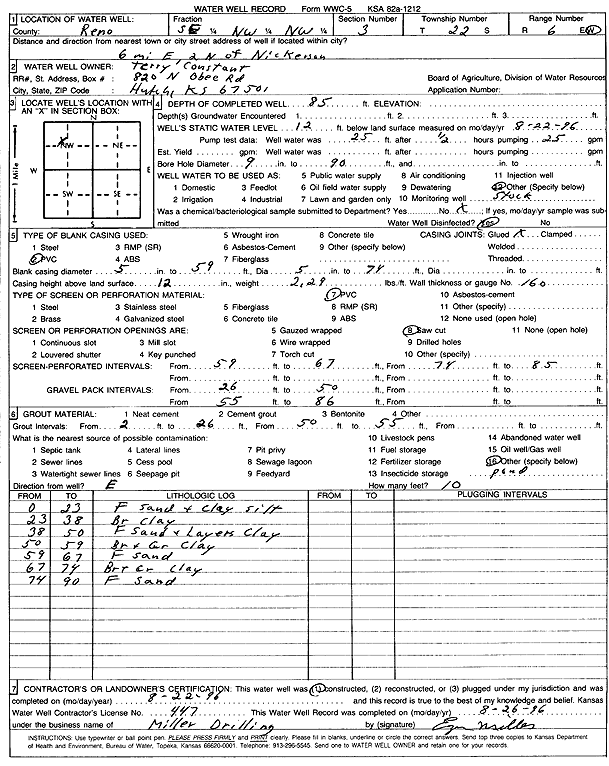 WATER WELL RECORD Form WWC-5 KSA 82a-1212
1 LOCATION OF WATER WELL: Fraction Section Number Township Number Range Number
County: Reno SE ¼ NW ¼ NW ¼ 3 T 22 S R 6 E/W
Distance and direction from nearest town or city street address of well if located within city?
6 mi E 2 N of Nickerson
2 WATER WELL OWNER: Terry Constant
RR#, St. Address, Box # : 820 N Obee Rd Board of Agriculture, Division of Water Resources
City, State, ZIP Code : Hutch, KS 67501 Application Number:
3 LOCATE WELL'S LOCATION WITH AN "X" IN SECTION BOX:
N
NW NE
W E
SW SE
S
1 Mile
4 DEPTH OF COMPLETED WELL 85 ft. ELEVATION:
Depth(s) Groundwater Encountered 1. ft. 2. ft. 3. ft.
WELL'S STATIC WATER LEVEL 12 ft. below land surface measured on mo/day/yr 8-22-96
Pump test data: Well water was 25 ft. after ½ hours pumping 25 gpm
Est. Yield gpm: Well water was ft. after hours pumping gpm
Bore Hole Diameter 9 in. to 90 ft., and in. to ft.
WELL WATER TO BE USED AS: 5 Public water supply 8 Air conditioning 11 Injection well
1 Domestic 3 Feedlot 6 Oil field water supply 9 Dewatering 12 Other (Specify below)
2 Irrigation 4 Industrial 7 Lawn and garden only 10 Monitoring well Stock
Was a chemical/bacteriological sample submitted to Department? Yes No X ; If yes, mo/day/yr sample was submitted Water Well Disinfected? Yes No
5 TYPE OF BLANK CASING USED: 5 Wrought iron 8 Concrete tile CASING JOINTS: Glued X Clamped
1 Steel 3 RMP (SR) 6 Asbestos-Cement 9 Other (specify below) Welded
2 PVC 4 ABS 7 Fiberglass Threaded
Blank casing diameter 5 in. to 59 ft., Dia 5 in. to 74 ft., Dia in. to ft.
Casing height above land surface 12 in., weight 2,29 lbs./ft. Wall thickness or gauge No. 160
TYPE OF SCREEN OR PERFORATION MATERIAL: 7 PVC 10 Asbestos-cement
1 Steel 3 Stainless steel 5 Fiberglass 8 RMP (SR) 11 Other (specify)
2 Brass 4 Galvanized steel 6 Concrete tile 9 ABS 12 None used (open hole)
SCREEN OR PERFORATION OPENINGS ARE: 5 Gauzed wrapped 8 Saw cut 11 None (open hole)
1 Continuous slot 3 Mill slot 6 Wire wrapped 9 Drilled holes
2 Louvered shutter 4 Key punched 7 Torch cut 10 Other (specify)
SCREEN-PERFORATED INTERVALS: From 59 ft. to 67 ft., From 74 ft. to 85 ft.
From ft. to ft., From ft. to ft.
GRAVEL PACK INTERVALS: From 26 ft. to 50 ft., From ft. to ft.
From 55 ft. to 86 ft., From ft. to ft.
6 GROUT MATERIAL: 1 Neat cement 2 Cement grout 3 Bentonite 4 Other
Grout Intervals: From 2 ft. to 26 ft., From 50 ft. to 55 ft., From ft. to ft.
What is the nearest source of possible contamination: 10 Livestock pens 14 Abandoned water well
1 Septic tank 4 Lateral lines 7 Pit privy 11 Fuel storage 15 Oil well/Gas well
2 Sewer lines 5 Cess pool 8 Sewage lagoon 12 Fertilizer storage 16 Other (specify below)
3 Watertight sewer lines 6 Seepage pit 9 Feedyard 13 Insecticide storage pond
Direction from well? E How many feet? 10
FROM TO LITHOLOGIC LOG FROM TO PLUGGING INTERVALS
0 23 F Sand + Clay silt
23 38 Br Clay
38 50 F Sand + Layers Clay
50 59 Br + Gr Clay
59 67 F Sand
67 74 Br + Gr Clay
74 90 F Sand
7 CONTRACTOR'S OR LANDOWNER'S CERTIFICATION: This water well was (1) constructed, (2) reconstructed, or (3) plugged under my jurisdiction and was
completed on (mo/day/year) 8-22-96 and this record is true to the best of my knowledge and belief. Kansas
Water Well Contractor's License No. 447 This Water Well Record was completed on (mo/day/yr) 8-26-96
under the business name of Miller Drilling by (signature)
INSTRUCTIONS: Use typewriter or ball point pen. PLEASE PRESS FIRMLY and PRINT clearly. Please fill in blanks, underline or circle the correct answers. Send top three copies to Kansas Department
of Health and Environment, Bureau of Water, Topeka, Kansas 66620-0001. Telephone: 913-296-5545. Send one to WATER WELL OWNER and retain one for your records.